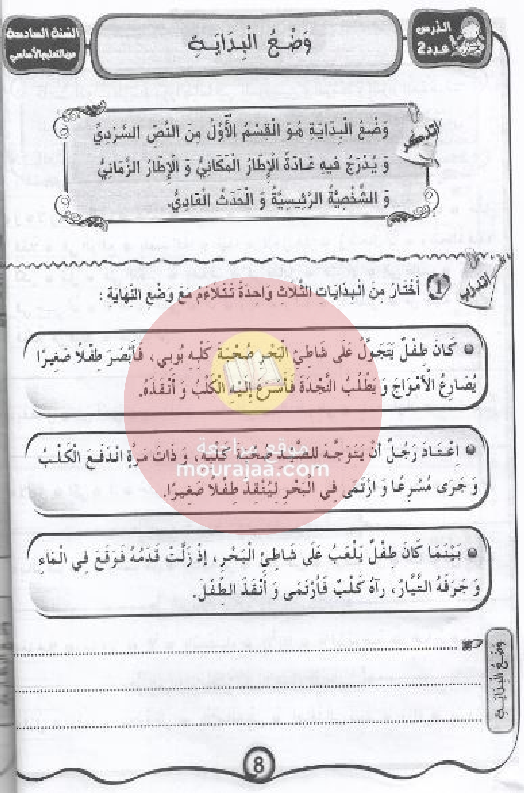 الدّرس
عدد2
وَضْعُ الْبِدَايَةِ
السّنة السادسة
من التعليم الأساسي
أتذكّر
وَضْعُ الْبِدَايَةِ هُوَ الْقِسْمُ الْأَوَّلُ مِنَ النَّصِّ السَّرْدِيِّ
وَ يُدْرَجُ فِيهِ عَادَةً الْإِطَارُ الْمَكَانِيُّ وَ الْإِطَارُ الزَّمَانِيُّ
وَ الشَّخْصِيَّةُ الرَّئِيسِيَّةُ وَ الْحَدَثُ الْعَادِيُّ.
أتدرّب
1 أَخْتَارُ مِنَ الْبِدَايَاتِ الثَّلَاثِ وَاحِدَةً تَتَلَاءَمُ مَعَ وَضْعِ النِّهَايَةِ :
• كَانَ طِفْلٌ يَتَجَوَّلُ عَلَى شَاطِئِ الْبَحْرِ صُحْبَةَ كَلْبِهِ بُوبِي، فَأَبْصَرَ طِفْلًا صَغِيرًا
يُصَارِعُ الْأَمْوَاجَ وَ يَطْلُبُ النَّجْدَةَ فَأَسْرَعَ إِلَيْهِ الْكَلْبُ وَ أَنْقَذَهُ.
• اِعْتَادَ رَجُلٌ أَنْ يَتَوَجَّهَ لِلصَّيْدِ صُحْبَةَ كَلْبِهِ، وَ ذَاتَ مَرَّةٍ انْدَفَعَ الْكَلْبُ
وَ جَرَى مُسْرِعًا وَ ارْتَمَى فِي الْبَحْرِ لِيُنْقِذَ طِفْلًا صَغِيرًا.
• بَيْنَمَا كَانَ طِفْلٌ يَلْعَبُ عَلَى شَاطِئِ الْبَحْرِ، إِذْ زَلَّتْ قَدَمُهُ فَوَقَعَ فِي الْمَاءِ
وَ جَرَفَهُ التَّيَّارُ، رَآهُ كَلْبٌ فَارْتَمَى وَ أَنْقَذَ الطِّفْلَ.
موقع مراجعة
mourajaa.com
وَضْعُ الْبِدَايَةِ
8